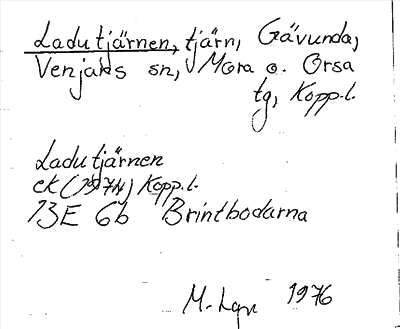 Ladutjärnen, tjärn, Gävunda,
Venjans sn, Mora o. Orsa
tg, Kopp.l.
Ladutjärnen
ek (1974) Kopp.l.
13E 6b Brintbodarna
M. 1976